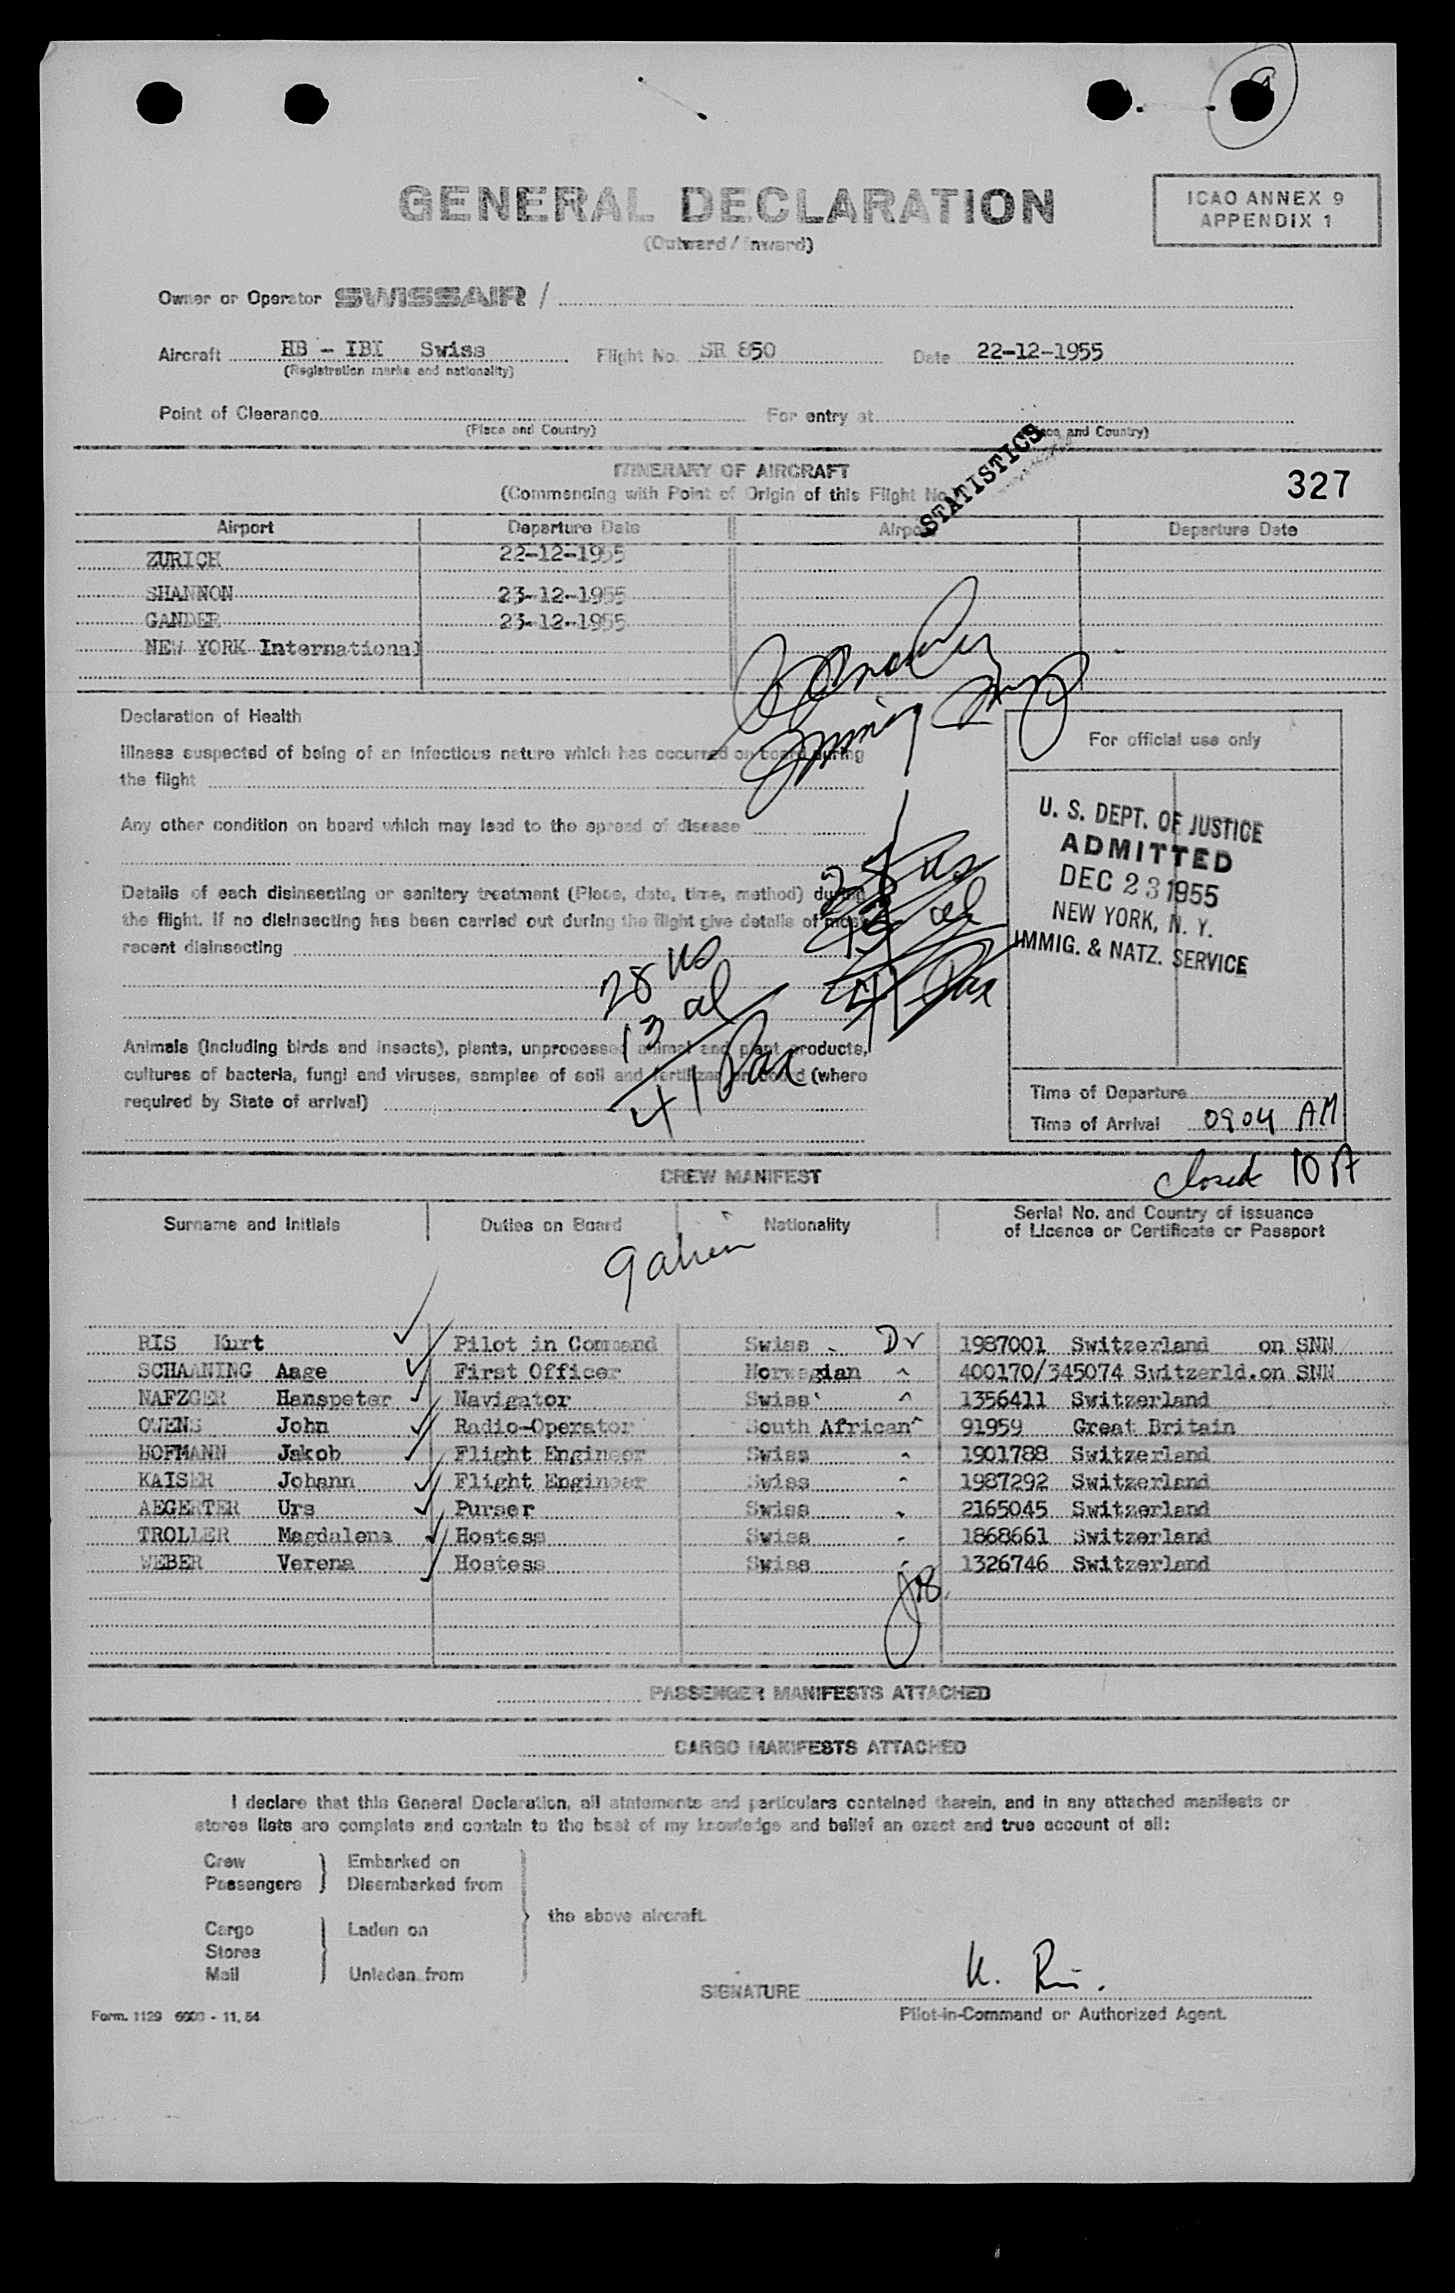 GENERAL DECLARATION
(Outward / Inward)
ICAO ANNEX 9
APPENDIX 1
Owner or Operator SWISSAIR /
Aircraft HB - IBI Swiss Flight No. SR 850 Date 22-12-1955
(Registration marks and nationality)
Point of Clearance For entry at
(Place and Country) (Place and Country)
STATISTICS
ITINERARY OF AIRCRAFT
(Commencing with Point of Origin of this Flight No.
327
Airport Departure Date Airport Departure Date
ZURICH 22-12-1955
SHANNON 23-12-1955
GANDER 23-12-1955
NEW YORK International
Declaration of Health
Illness suspected of being of an infectious nature which has occurred on board during
the flight
Any other condition on board which may lead to the spread of disease
Details of each disinsecting or sanitary treatment (Place, date, time, method) during
the flight. If no disinsecting has been carried out during the flight give details of most
recent disinsecting
28 us
13 al
41 Pax
28 us
13 al
41 Pax
Animals (including birds and insects), plants, unprocessed animal and plant products,
cultures of bacteria, fungi and viruses, samples of soil and fertilizer on board (where
required by State of arrival)
For official use only
U. S. DEPT. OF JUSTICE
ADMITTED
DEC 23 1955
NEW YORK, N. Y.
IMMIG. & NATZ. SERVICE
Time of Departure
Time of Arrival 0904 AM
closed 10 A
CREW MANIFEST
Surname and Initials Duties on Board Nationality Serial No. and Country of issuance
of Licence or Certificate or Passport
9 alien
RIS Kurt Pilot in Command Swiss 1987001 Switzerland on SNN
SCHAANING Aage First Officer Norwegian 400170/345074 Switzerld.on SNN
NAFZGER Hanspeter Navigator Swiss 1356411 Switzerland
OWENS John Radio-Operator South African 91959 Great Britain
HOFMANN Jakob Flight Engineer Swiss 1901788 Switzerland
KAISER Johann Flight Engineer Swiss 1987292 Switzerland
AEGERTER Urs Purser Swiss 2165045 Switzerland
TROLLER Magdalena Hostess Swiss 1868661 Switzerland
WEBER Verena Hostess Swiss 1326746 Switzerland
PASSENGER MANIFESTS ATTACHED
CARGO MANIFESTS ATTACHED
I declare that this General Declaration, all statements and particulars contained therein, and in any attached manifests or
stores lists are complete and contain to the best of my knowledge and belief an exact and true account of all:
Crew Embarked on
Passengers Disembarked from
the above aircraft.
Cargo Laden on
Stores
Mail Unladen from
SIGNATURE K. Ris.
Pilot-in-Command or Authorized Agent.
Form. 1129 6000 - 11. 54